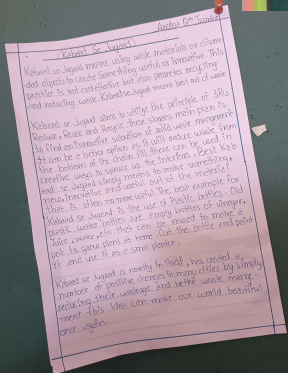 Kabaad Se Jugaad
Kabaad se Jugaad means using waste materials or discarded
ded objects to create something useful or innovative. This
practice is not cost effective but also promotes recycling
and reducing waste. Kabaad se Jugaad means best out of waste.
Kabaad se Jugaad aims to utilize the principle of 3Rs
Reduce, Reuse and Recycle these slogans main plan is
to find an innovative solution of solid waste management
It can be a better option as it will reduce waste from
the bottom of the chain itself these can be used in
creative ways to spruce up the interiors. Best Kab
and se Jugaad simply means to make something,
new, innovative and useful out of the material
that is often no more useful. The best example for
Kabaad se Jugaad is the use of Plastic bottles. Old
plastic water bottles are empty bottles of vinegar,
Juice, etc that can be reused to make a
pot to grow plant at home. Cut the bottle and paint
it and use it as a small planter.
Kabaad se Jugaad a novelty in itself, has created a
number of positive changes in many cities by simply
reducing their wastage and better waste manage
ment this idea can make our world beautiful
once again.